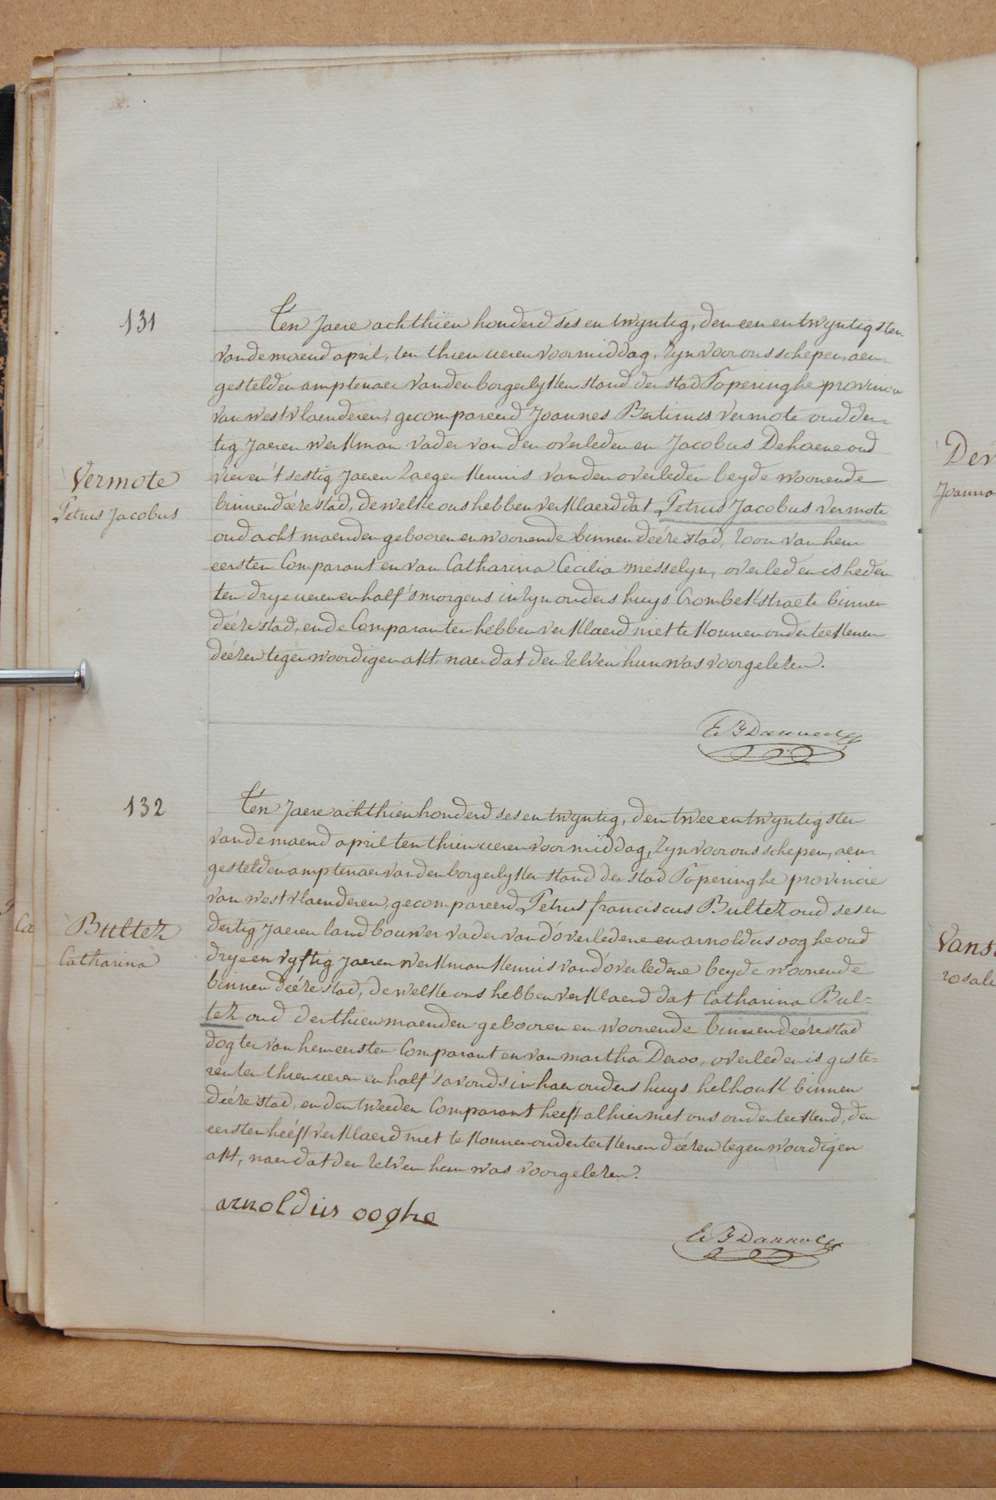 131
Ten Jaere achthien honderd ses en twyntig, den een en twyntigsten
van de maend april, ten thien ueren voormiddag, Zyn voor ons schepen, aen-
gestelden amptenaer van den borgerlyken stand der stad Poperinghe provincie
van westvlaenderen, gecompareerd Joannes Bertinus Vermote oud der-
tig Jaeren werkman vader van den overleden en Jacobus Dehaene oud
vier en 't sestig Jaeren Zaeger kennis van den overleden beyde woonende
binnen déze stad, de welke ons hebben verklaerd dat Petrus Jacobus Vermote
oud acht maenden gebooren en woonende binnen déze stad, Zoon van hem
eersten Comparant en van Catharina Cecilia Messelyn, overleden is heden
ten drye ueren en half 's morgens in Zyn ouders huys Crombek straete binnen
déze stad, en de Comparanten hebben verklaerd niet te konnen onderteekenen
déezen tegenwoordigen akt naer dat den Zelven hun was voorgelezen.
Vermote
Petrus Jacobus
132
Ten Jaere achthien honderd ses en twyntig, den twee en twyntigsten
van de maend april ten thien ueren voormiddag, Zyn voor ons schepen, aen-
gestelden amptenaer van den borgerlyken stand der stad Poperinghe provincie
van westvlaenderen, gecompareerd Petrus franciscus Bultez oud ses en
dertig Jaeren landbouwer vader van d'overledene en arnoldus ooghe oud
drye en vyftig Jaeren werkman kennis van d'overledene beyde woonende
binnen déeze stad, de welke ons hebben verklaerd dat Catharina Bul-
tez oud derthien maenden gebooren en woonende binnen déeze stad
dogter van hem eersten Comparant en van martha Deroo, overleden is giste-
ren ten thien ueren en half 's avonds in haer ouders huys helhouk binnen
déeze stad, en den tweeden Comparant heeft alhier met ons onderteekend, den
eersten heeft verklaerd niet te konnen onderteekenen déezen tegenwoordigen
akt, naer dat den Zelven hem was voorgelezen.
Bultez
Catharina
arnoldus ooghe
Der
Joanna
Vans
rosali